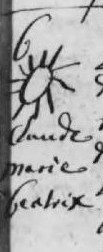 6
claude
marie
beatrix